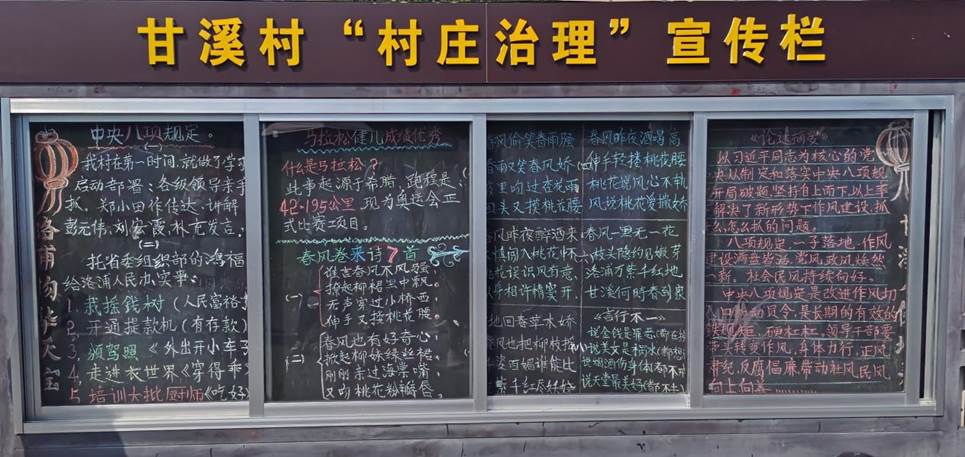 甘溪村“村庄治理”宣传栏
中央八项规定。
(一)
我村在第一时间,就做了学
启动部署:各级领导亲手
抓、郑小田作传达、讲解
彭元伟、刘宏霞、补充发言,
(二)
托省委组织部的鸿福
给洛浦人民办实事:
1. 我摇钱树(人民富裕
2. 开通提款机(有存款)
3. 颁驾照《外出开小车
4. 走进衣世界《穿得乖
5. 培训大批厨师《吃好
马拉松健儿成绩优秀
什么是马拉松?
此事起源于希腊,跑程是:
42·195公里,现为奥运会正
式比赛项目。
春风卷来诗7首
(一)
谁言春风不风骚,
撩起柳裙里中飘。
无声穿过小桥西,
伸手又搭桃花腰
(二)
春风也有好奇心
掀起柳妹绿丝裙
刚刚亲过海棠嘴
又吻桃花粉瓣唇
风偷笑春雨骚
雨又笑春风娇
又摸桃花腰
春风昨夜酒喝高
伸手轻搂桃花腰
桃花说风心不轨
风说桃花爱撒娇
风昨夜醉酒来
花误识风有意
相许情窦开
春风一里无一花
枝头隐约见嫩芽
洛浦万紫千红地
甘溪何时春到家
地回春草木娇
风也把柳枝
姿百媚谁能比
《言行不一》
说金钱是罪恶
说美女是祸水
说烟酒伤身体
说天堂最美好
以习近平同志为核心的党
央从制定和落实中央八项规
开局破题,坚持自上而下以上率
解决了新形势下作风建设,抓
么,怎么抓的问题。
八项规定一子落地,作风
建设满盘皆活,党风政风焕然
新。社会民风持续向好。
中央八项规定是改进作风切
是长期的有效的
领导干部要
带头转变作风,身体力行,正风
肃纪,反腐倡廉,带动社风民风
向上向善